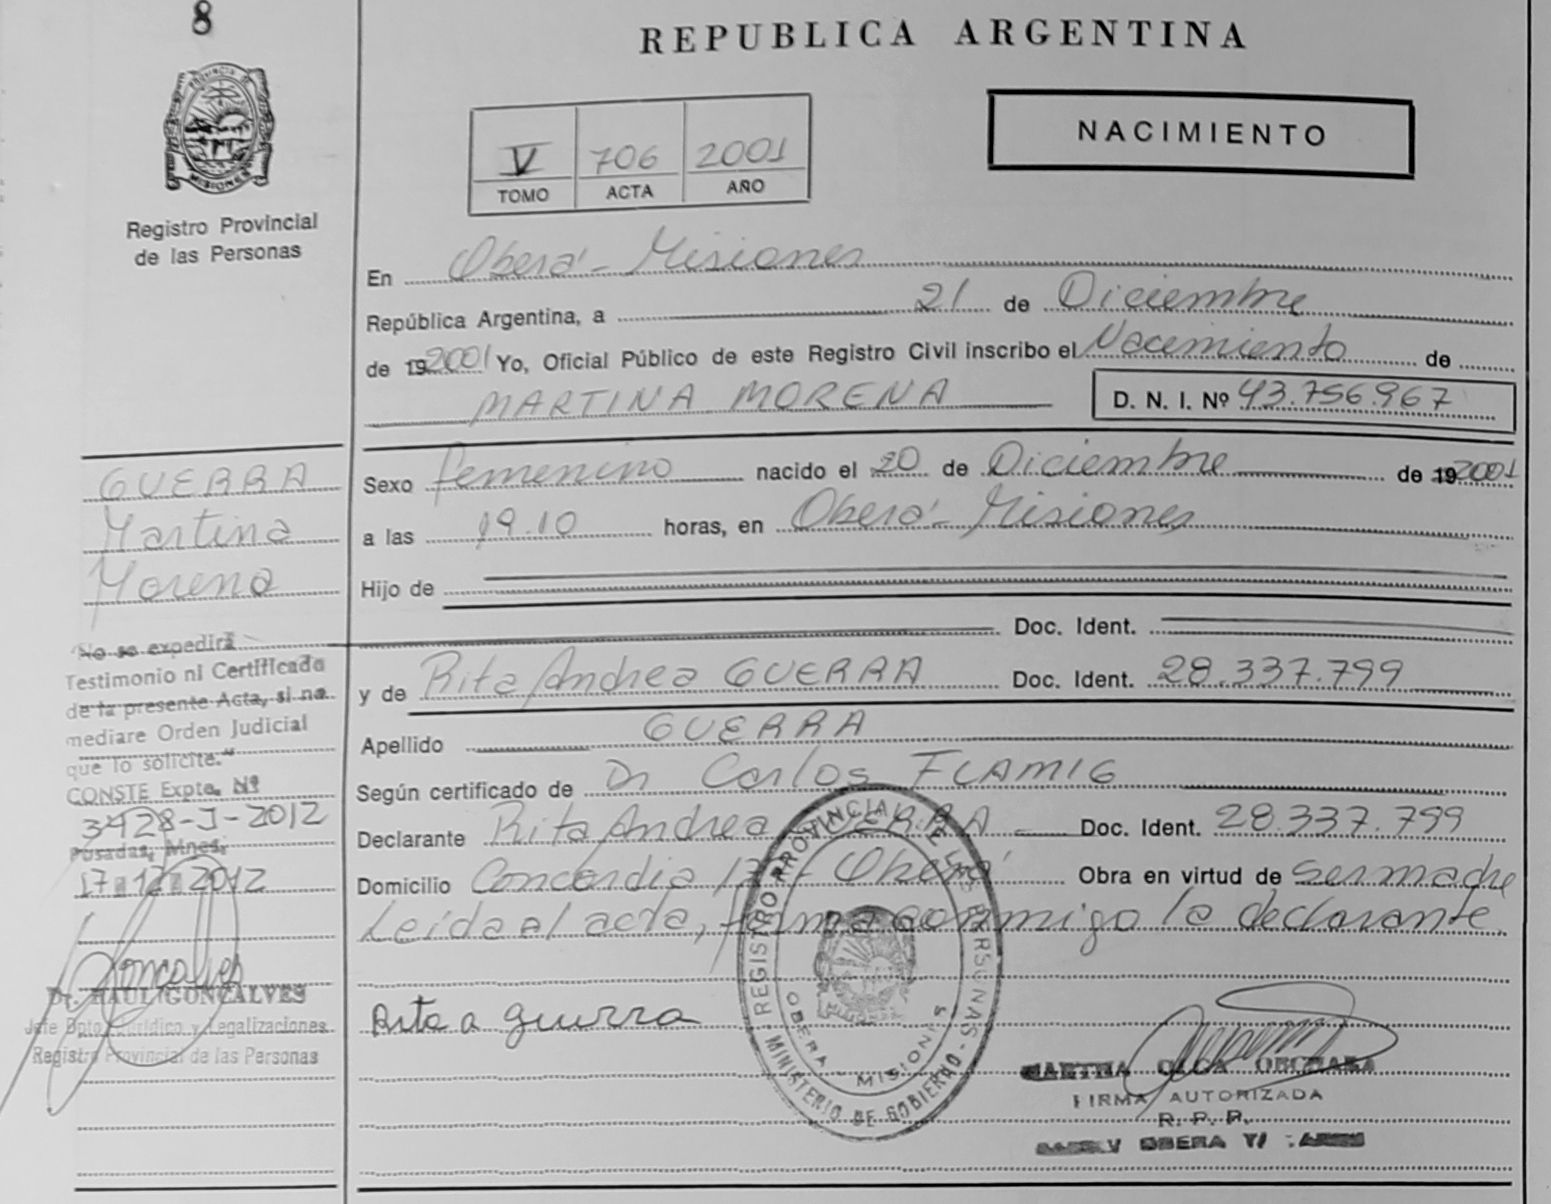 8
REPUBLICA ARGENTINA
PROVINCIA DE
MISIONES
Registro Provincial
de las Personas
V 706 2001
TOMO ACTA AÑO
NACIMIENTO
En Oberá - Misiones
República Argentina, a 21 de Diciembre
de 19 2001 Yo, Oficial Público de este Registro Civil inscribo el Nacimiento de
MARTINA MORENA D. N. I. Nº 43.756.967
GUERRA
Martina
Morena
Sexo femenino nacido el 20 de Diciembre de 19 2001
a las 19.10 horas, en Oberá - Misiones
Hijo de
Doc. Ident.
y de Rita Andrea GUERRA Doc. Ident. 28.337.799
Apellido GUERRA
Según certificado de Dr Carlos FLAMIG
Declarante Rita Andrea GUERRA Doc. Ident. 28.337.799
Domicilio Concordia Oberá Obra en virtud de ser madre
Leída el acta, firma conmigo la declarante.
"No se expedirá
Testimonio ni Certificado
de la presente Acta, si no
mediare Orden Judicial
que lo solicite."
CONSTE Expte. Nº
3428-J-2012
Posadas, Mnes.
17 12 2012
Goncalves
Dr. RAUL GONCALVES
Jefe Dpto. Jurídico y Legalizaciones
Registro Provincial de las Personas
Rita a guerra
REGISTRO PROVINCIAL DE LAS PERSONAS
OBERA - MISIONES
MINISTERIO DE GOBIERNO
MARTHA OLGA
FIRMA AUTORIZADA
R. P. P.
OBERA